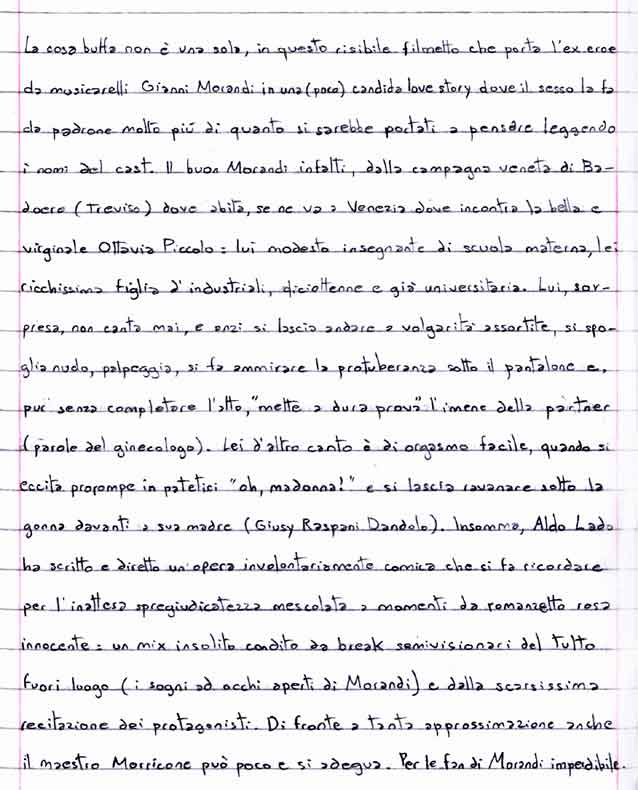 La cosa buffa non è una sola, in questo risibile filmetto che porta l'ex eroe
da musicarelli Gianni Morandi in una (poco) candida love story dove il sesso la fa
da padrone molto più di quanto si sarebbe portati a pensare leggendo
i nomi del cast. Il buon Morandi infatti, dalla campagna veneta di Ba-
doere (Treviso) dove abita, se ne va a Venezia dove incontra la bella e
virginale Ottavia Piccolo: lui modesto insegnante di scuola materna, lei
ricchissima figlia d'industriali, diciottenne e già universitaria. Lui, sor-
presa, non canta mai, e anzi si lascia andare a volgarità assortite, si spo-
glia nudo, palpeggia, si fa ammirare la protuberanza sotto il pantalone e,
pur senza completare l'atto, "mette a dura prova" l'imene della partner
(parole del ginecologo). Lei d'altro canto è di orgasmo facile, quando si
eccita prorompe in patetici "oh, madonna!" e si lascia ravanare sotto la
gonna davanti a sua madre (Giusy Raspani Dandolo). Insomma, Aldo Lado
ha scritto e diretto un'opera involontariamente comica che si fa ricordare
per l'inattesa spregiudicatezza mescolata a momenti da romanzetto rosa
innocente: un mix insolito condito da break semivisionari del tutto
fuori luogo (i sogni ad occhi aperti di Morandi) e dalla scarsissima
recitazione dei protagonisti. Di fronte a tanta approssimazione anche
il maestro Morricone può poco e si adegua. Per le fan di Morandi imperdibile.